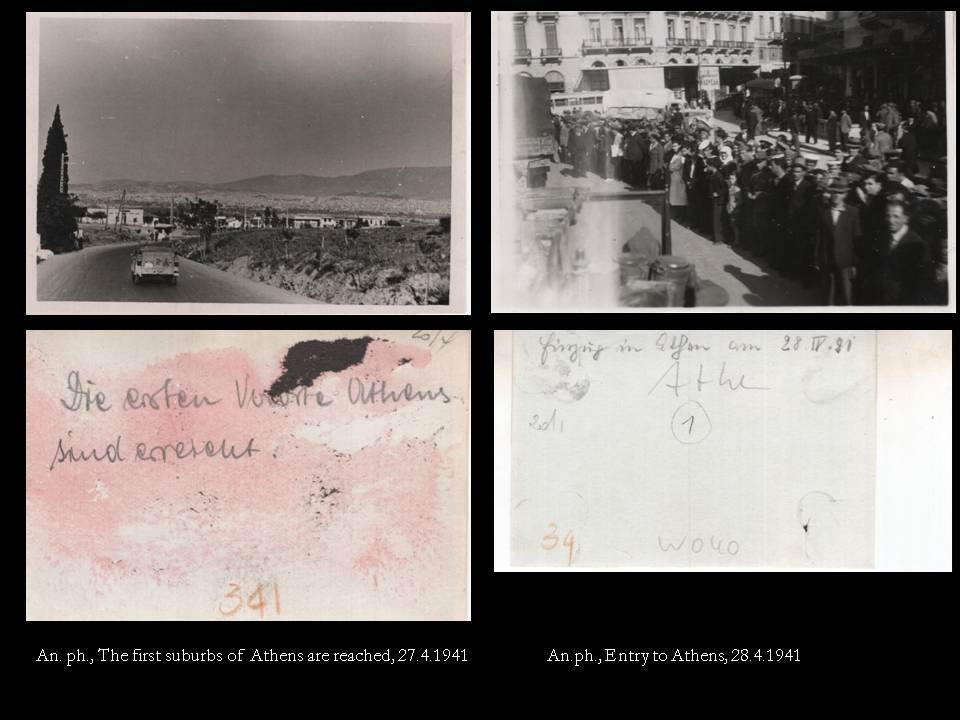 20/4
Die ersten Vororte Athens
sind erreicht.
341
Einzug in Athen am 28.IV.91
Athe
20/1
1
34
An. ph., The first suburbs of Athens are reached, 27.4.1941
An.ph., Entry to Athens, 28.4.1941